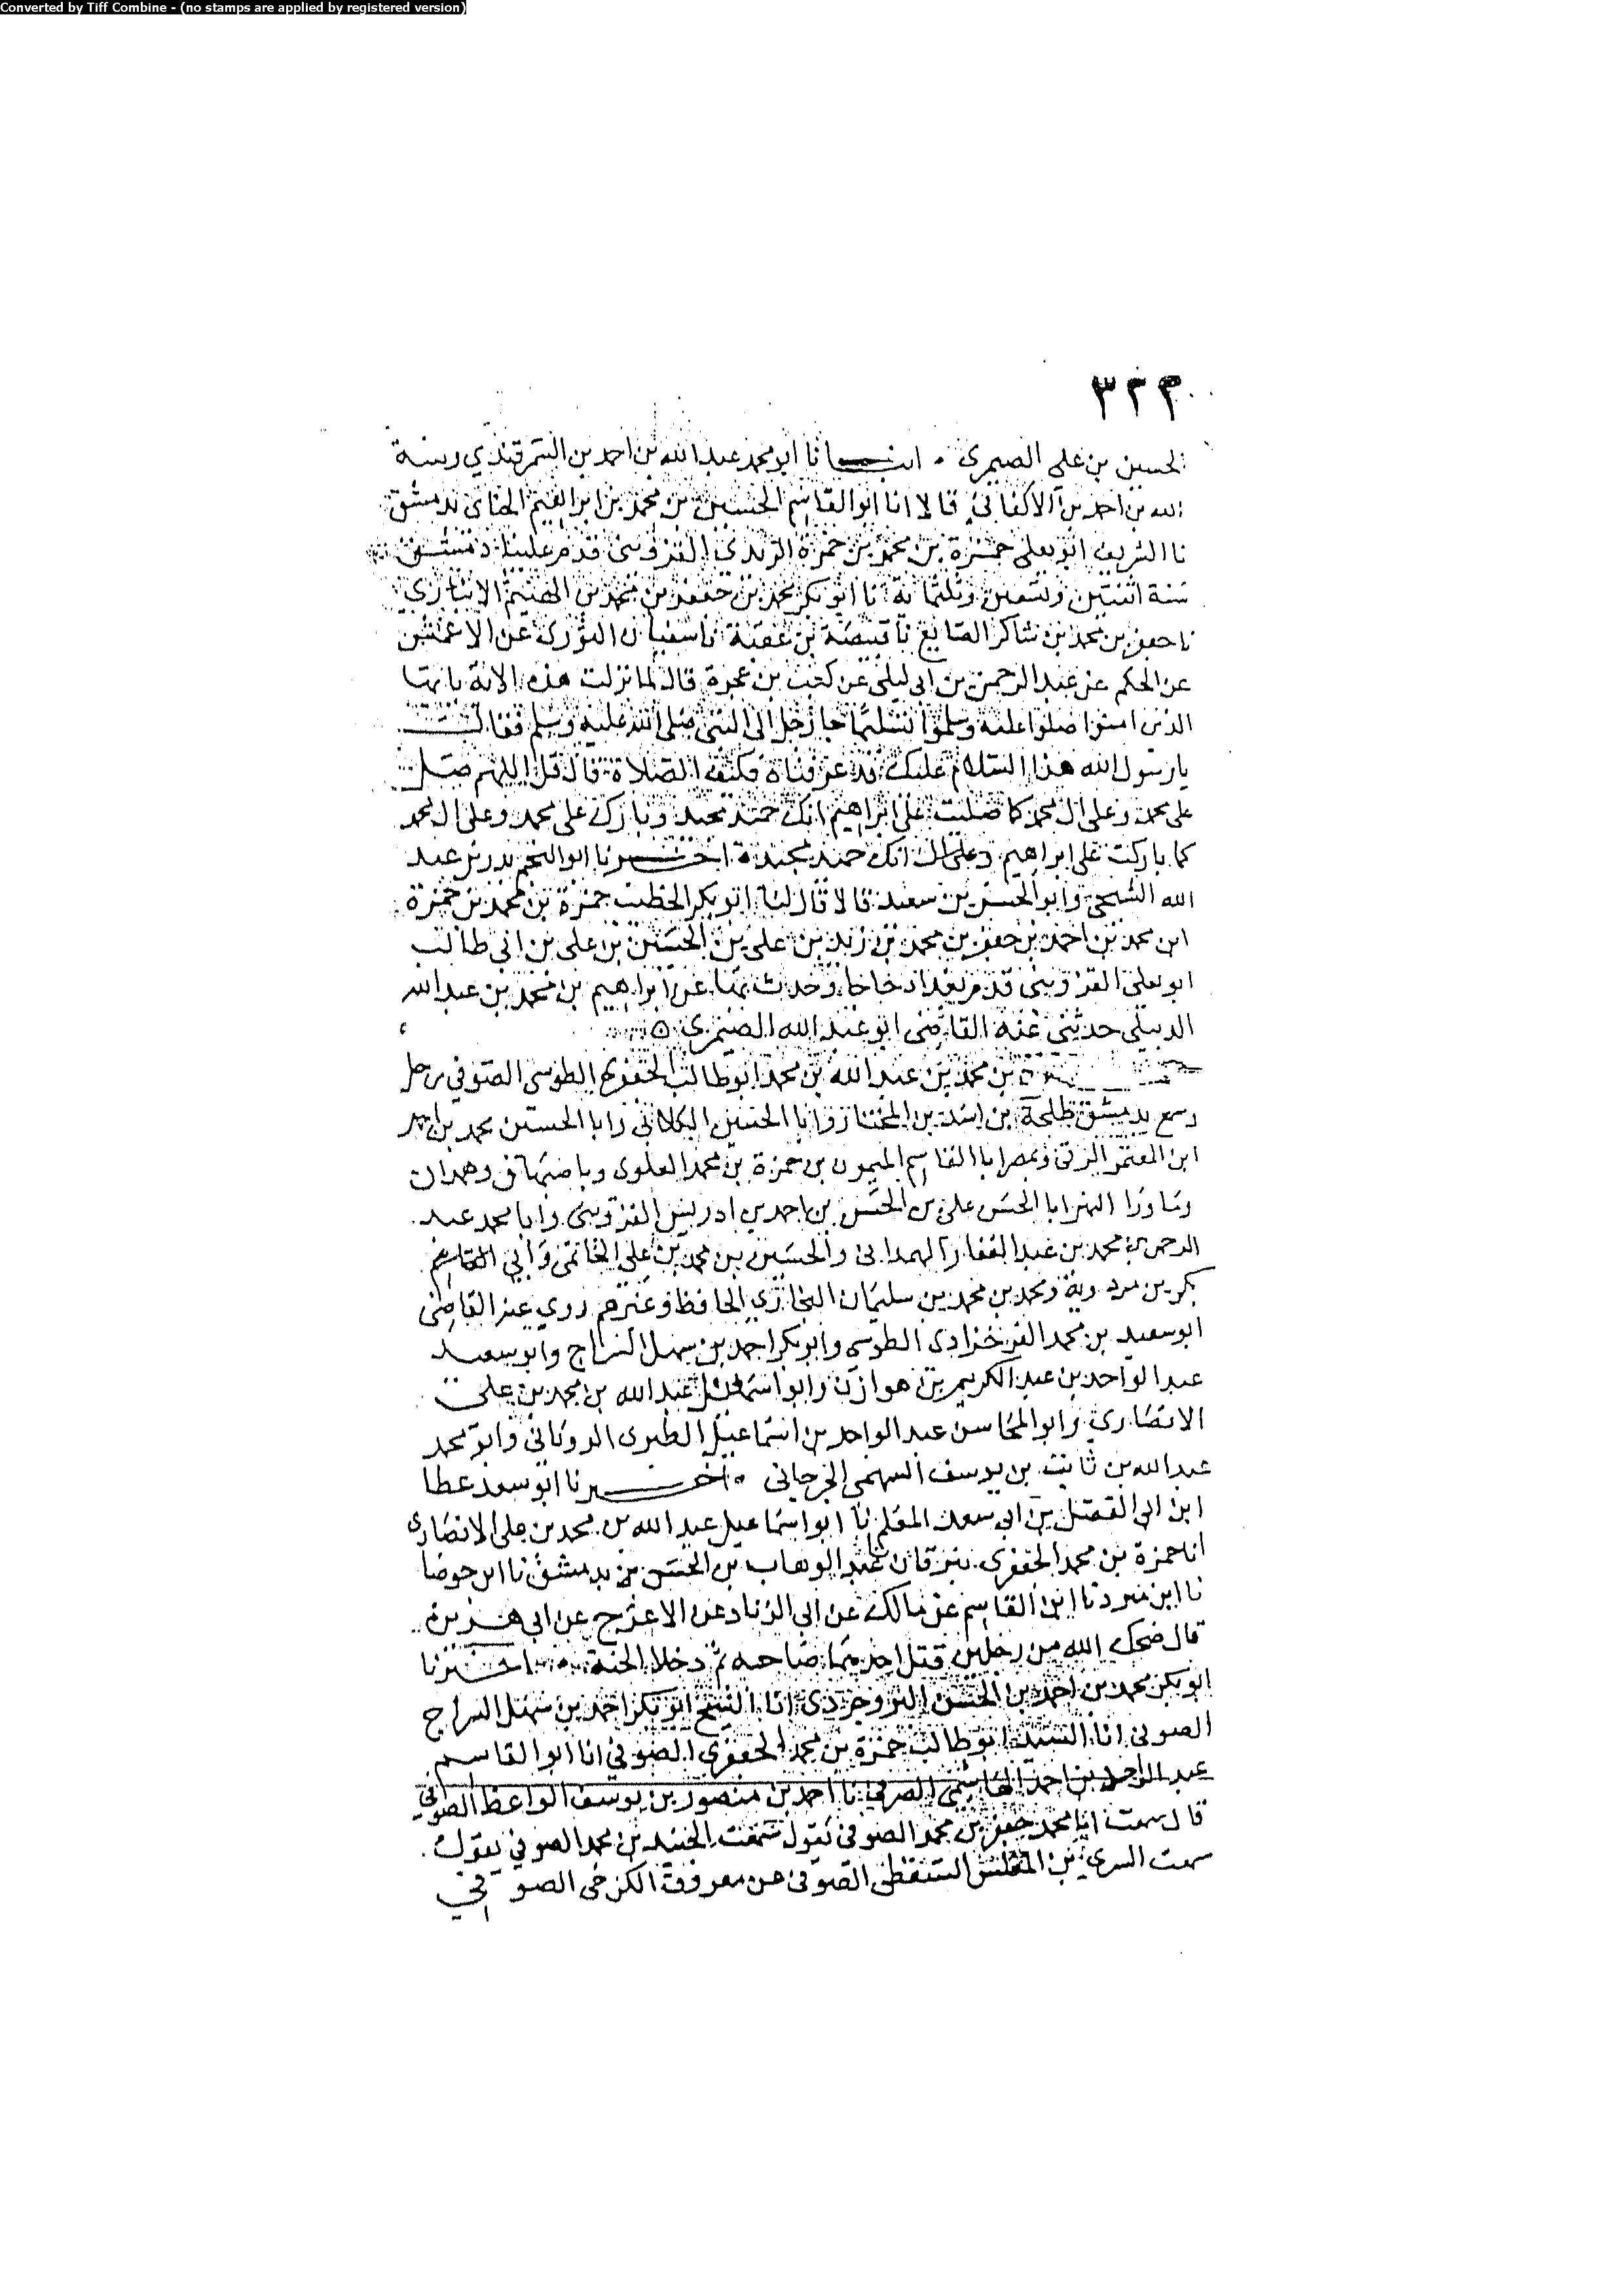 Converted by Tiff Combine - (no stamps are applied by registered version)
٣٢٣
الحسين بن على الصيمرى . انبانا ابو محمد عبد الله بن احمد بن السمرقندي وهبة
الله بن احمد بن الاكفاني قالا انا ابو القاسم الحسين بن محمد بن ابراهيم الحنائي بدمشق
نا الشريف ابو يعلى حمزة بن محمد بن حمزة الزيدي القزويني قدم علينا دمشق
سنة اثنتين وتسعين وثلثمائة نا ابو بكر محمد بن جعفر بن محمد بن الهيثم الانباري
نا جعفر بن محمد بن شاكر الصايغ نا قبيصة بن عقبة نا سفيان الثوري عن الاعمش
عن الحكم عن عبد الرحمن بن ابي ليلى عن كعب بن عجرة قال لما نزلت هذه الاية يا ايها
الذين امنوا صلوا عليه وسلموا تسليما جا رجل الى النبي صلى الله عليه وسلم فقال
يا رسول الله هذا السلام عليك قد عرفناه فكيف الصلاة قال قل اللهم صل
على محمد وعلى ال محمد كما صليت على ابراهيم انك حميد مجيد وبارك على محمد وعلى ال محمد
كما باركت على ابراهيم وعلى ال انك حميد مجيد ه اخبرنا ابو النجم بدر بن عبد
الله الشيحي وابو الحسن بن سعيد قالا قال لنا ابو بكر الخطيب حمزة بن محمد بن حمزة
ابن محمد بن احمد بن جعفر بن محمد بن زيد بن علي بن الحسين بن على بن ابي طالب
ابو يعلى القزويني قدم بغداد حاجا وحدث بها عن ابراهيم بن محمد بن عبد الله
الديبلي حدثني عنه القاضي ابو عبد الله الصيمري ٥
حمزة بن محمد بن عبد الله بن محمد ابو طالب الجعفري الطوسي الصوفي رحل
وسمع بدمشق طلحة بن اسد بن المختار وابا الحسين الكلابي وابا الحسين محمد بن
ابن المعتمر الرقي وبمصر ابا القاسم الميمون بن حمزة بن محمد العلوى وباصبهان وهمدان
وما ورا النهر ابا الحسن على بن الحسن بن احمد بن ادريس القزويني وابا محمد عبد
الرحمن بن محمد بن عبد الغفار الهمداني والحسين بن محمد بن علي الخاتمي وابي القاسم
بكر بن مردوية ومحمد بن محمد بن سليمان البخاري الحافظ وغيرهم روي عنه القاضي
ابو سعيد بن محمد الفرخزادي الطوسي وابو بكر احمد بن سهل السراج وابو سعيد
عبد الواحد بن عبد الكريم بن هوازن وابو اسمعيل عبد الله بن محمد بن علي
الانصاري وابو المحاسن عبد الواحد بن اسماعيل الطبري الروياني وابو محمد
عبد الله بن ثابت بن يوسف السهمي الجرجاني ه اخبرنا ابو سعد عطا
ابن ابي الفضل بن ابي سعد المعلم نا ابو اسماعيل عبد الله بن محمد بن علي الانصارى
انا حمزة بن محمد الجعفري بنوقان نا عبد الوهاب بن الحسن بدمشق نا ابن جوصا
نا ابن مبرد نا ابن القاسم عن مالك عن ابي الزناد عن الاعرج عن ابي هريرة
قال ضحك الله من رجلين قتل احدهما صاحبه ثم دخلا الجنة ه اخبرنا
ابو بكر محمد بن احمد بن الحسن البروجردي انا الشيخ ابو بكر احمد بن سهل السراج
الصوفي انا السيد ابو طالب حمزة بن محمد الجعفري الصوفي انا ابو القاسم
عبد الواحد بن احمد الهاشمي الصوفي نا احمد بن منصور بن يوسف الواعظ الصوفي
قال سمعت ابا محمد جعفر بن محمد الصوفي يقول سمعت الجنيد بن محمد الصوفي يقول
سمعت السري بن المغلس السقطي الصوفي عن معروف الكرخي الصوفي